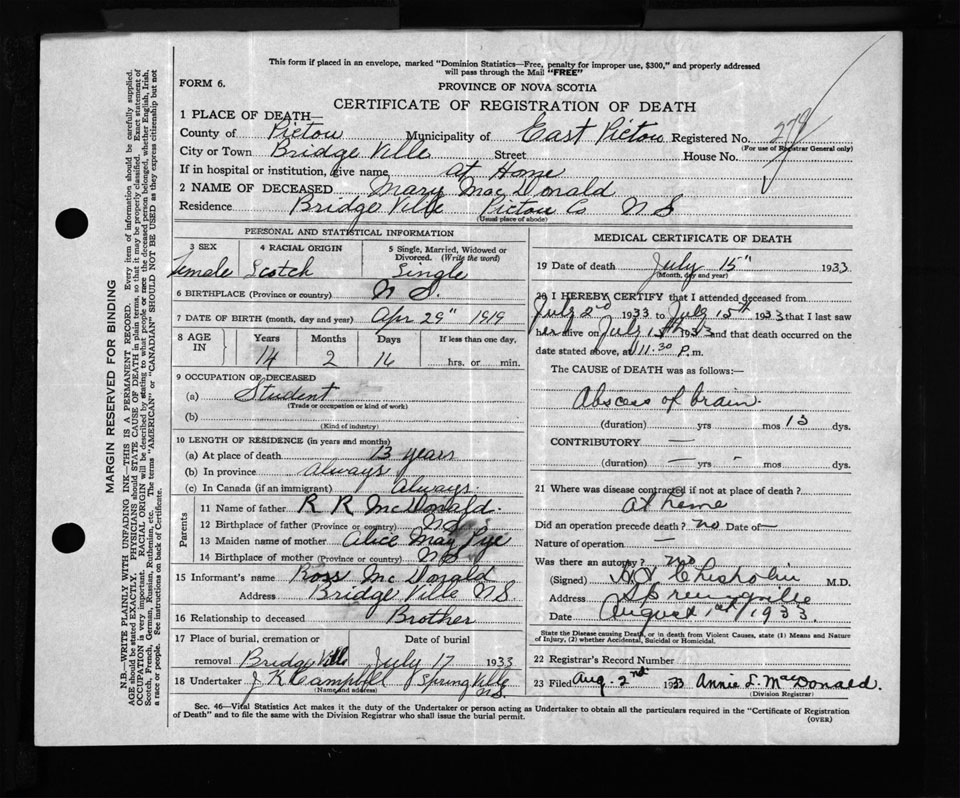 This form if placed in an envelope, marked "Dominion Statistics—Free, penalty for improper use, $300," and properly addressed
will pass through the Mail "FREE"
FORM 6.
PROVINCE OF NOVA SCOTIA
CERTIFICATE OF REGISTRATION OF DEATH
1 PLACE OF DEATH—
County of Pictou Municipality of East Pictou Registered No. 279
(For use of Registrar General only)
City or Town Bridge Ville Street House No.
If in hospital or institution, give name at Home
2 NAME OF DECEASED Mary Mac Donald
Residence Bridge Ville Pictou Co N S
(Usual place of abode)
PERSONAL AND STATISTICAL INFORMATION
3 SEX 4 RACIAL ORIGIN 5 Single, Married, Widowed or Divorced. (Write the word)
Female Scotch Single
6 BIRTHPLACE (Province or country) N S.
7 DATE OF BIRTH (month, day and year) Apr 29" 1919
8 AGE IN Years Months Days If less than one day,
14 2 16 hrs. or min.
9 OCCUPATION OF DECEASED
(a) Student
(Trade or occupation or kind of work)
(b)
(Kind of industry)
10 LENGTH OF RESIDENCE (in years and months)
(a) At place of death 13 years
(b) In province Always
(c) In Canada (if an immigrant) Always.
Parents
11 Name of father R R McDonald.
12 Birthplace of father (Province or country) N S
13 Maiden name of mother Alice May Pye
14 Birthplace of mother (Province or country) N S
15 Informant's name Ross Mc Donald
Address Bridge Ville N S
16 Relationship to deceased Brother
17 Place of burial, cremation or Date of burial
removal Bridge Ville July 17 1933
18 Undertaker J K Campbell Spring Ville N S
(Name and address)
MEDICAL CERTIFICATE OF DEATH
19 Date of death July 15" 1933
(Month, day and year)
20 I HEREBY CERTIFY that I attended deceased from
July 2nd 1933 to July 15th 1933 that I last saw
her alive on July 15th 1933 and that death occurred on the
date stated above, at 11.30 P. m.
The CAUSE of DEATH was as follows:—
Abscess of brain.
(duration) yrs mos 13 dys.
CONTRIBUTORY —
(duration) — yrs - mos dys.
21 Where was disease contracted if not at place of death?
at home
Did an operation precede death? no Date of —
Nature of operation —
Was there an autopsy? no
(Signed) Chisholm M.D.
Address Springville
Date August 1st/1933.
State the Disease causing Death, or in death from Violent Causes, state (1) Means and Nature
of Injury, (2) whether Accidental, Suicidal or Homicidal.
22 Registrar's Record Number
23 Filed Aug. 2nd 1933 Annie S. MacDonald.
(Division Registrar)
Sec. 46—Vital Statistics Act makes it the duty of the Undertaker or person acting as Undertaker to obtain all the particulars required in the "Certificate of Registration
of Death" and to file the same with the Division Registrar who shall issue the burial permit.
(OVER)
MARGIN RESERVED FOR BINDING
N.B.—WRITE PLAINLY WITH UNFADING INK—THIS IS A PERMANENT RECORD. Every item of information should be carefully supplied.
AGE should be stated EXACTLY. PHYSICIANS should STATE CAUSE OF DEATH in plain terms, so that it may be properly classified. Exact statement of
OCCUPATION is very important. RACIAL ORIGIN will be described by stating to what people or race the deceased person belonged, whether English, Irish,
Scotch, French, German, Russian, Ruthenian, etc. The terms "AMERICAN" or "CANADIAN" SHOULD NOT BE USED as they express citizenship but not
a race or people. See instructions on back of Certificate.